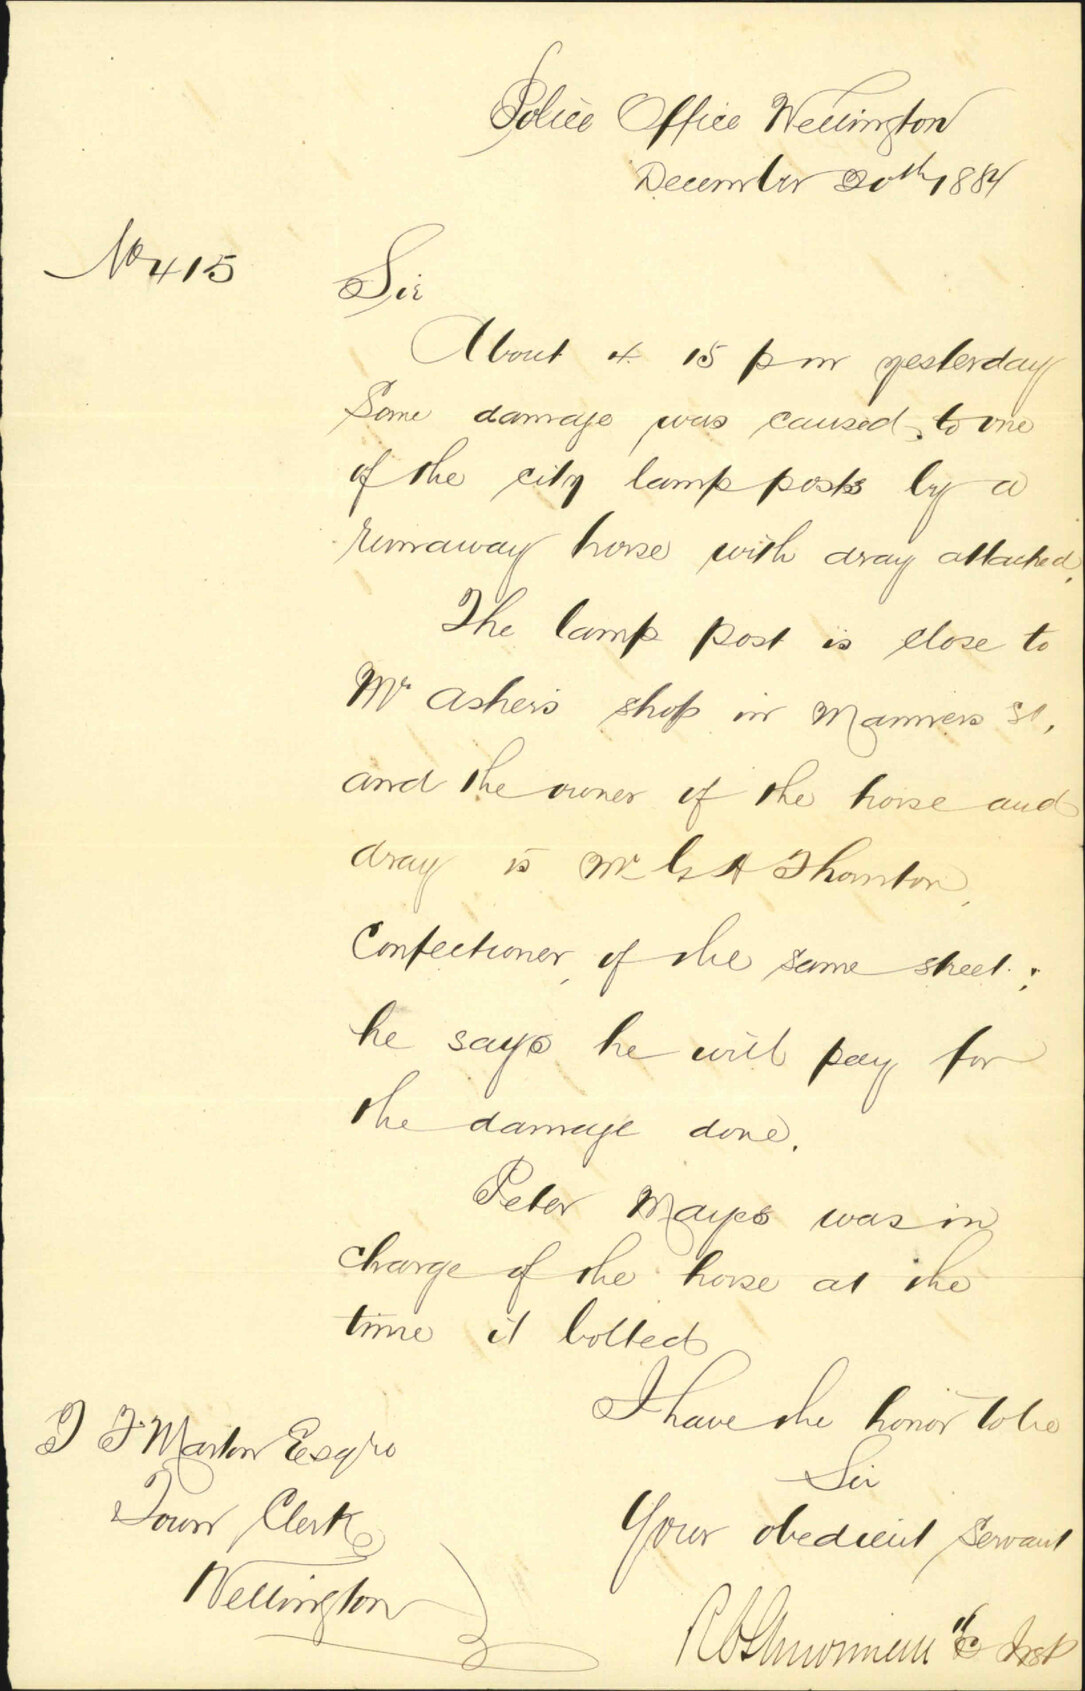 Police Office Wellington
December 20th, 1884
No 415
Sir
About 4. 15 p m yesterday
Some damage was caused, to one
of the city lamp posts by a
runaway horse with dray attached.
The lamp post is close to
Mr Asher's shop in Manners St,
and the owner of the horse and
dray is Mr G H Thornton,
Confectioner, of the same street;
he says he will pay for
the damage done.
Peter Mayes was in
charge of the horse at the
time it bolted
I have the honor to be
Sir
Your obedient servant
Insp
Esqre
Town Clerk
Wellington